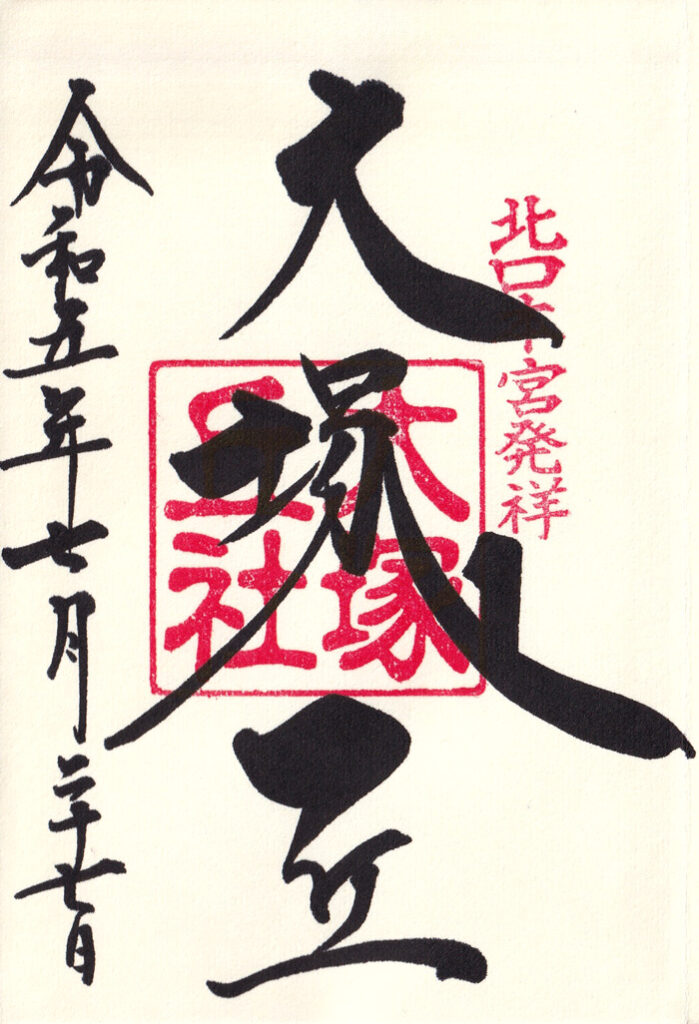 北口本宮発祥
大塚丘
大塚
丘社
令和五年七月二十七日